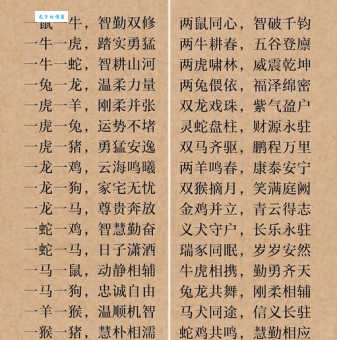 一鼠一牛，智勤双修
一牛一虎，踏实勇猛
一牛一蛇，智耕山河
一兔一龙，温柔力量
一虎一羊，刚柔并张
一虎一兔，运势不堵
一虎一猪，勇猛安逸
一龙一鸡，云海鸣曦
一龙一狗，家宅无忧
一龙一马，尊贵奔放
一蛇一鸡，智慧勤奋
一蛇一马，日子潇洒
一马一鼠，动静相辅
一马一狗，忠诚自由
一羊一猴，温顺机智
一猴一猪，慧朴相濡
两鼠同心，智破千钧
两牛耕春，五谷登廪
两虎啸林，威震乾坤
两兔偎依，福泽绵密
双龙戏珠，紫气盈户
灵蛇盘柱，财源永驻
双马齐驱，鹏程万里
两羊鸣春，康泰安宁
双猴摘月，笑满庭阙
金鸡并立，青云得志
义犬守户，长乐永驻
瑞豕同眠，岁岁安然
牛虎相携，勤勇齐天
兔龙共舞，刚柔相辅
马犬同途，信义长驻
蛇鸡共鸣，慧勤相应